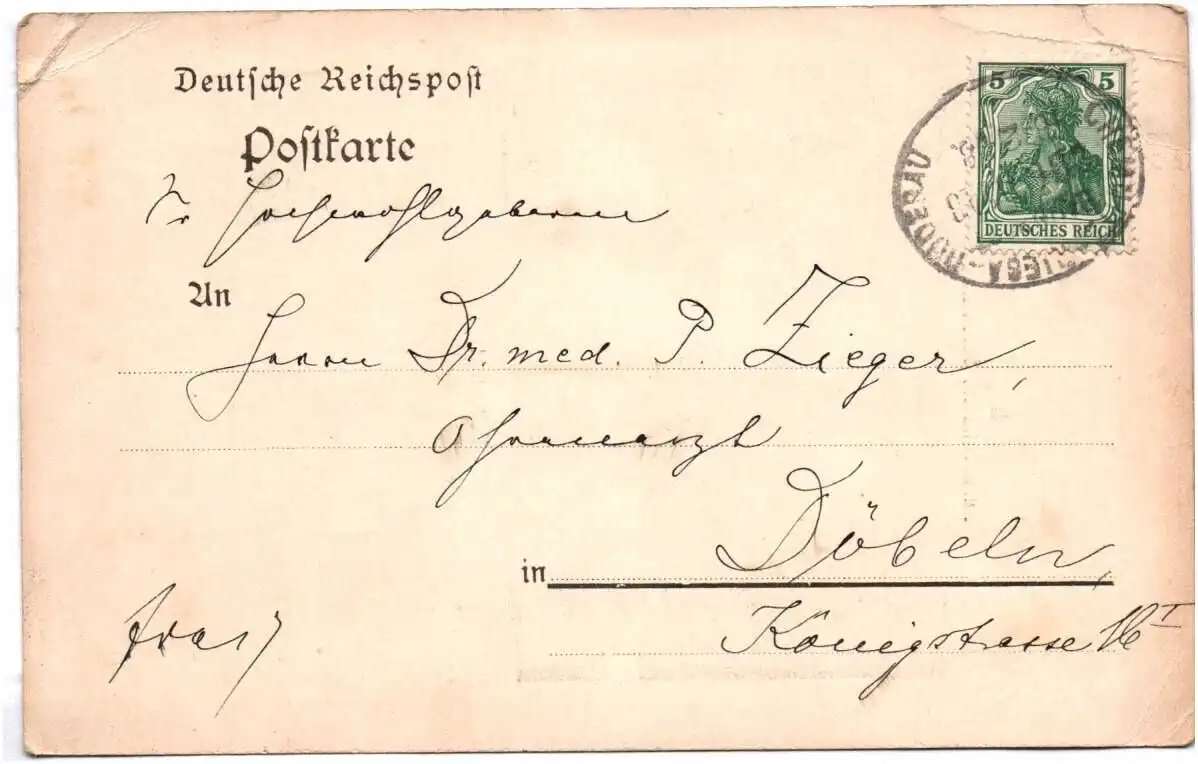 Deutsche Reichspost
Postkarte
Sr Hochwohlgeboren
An
Herrn Dr. med. P. Zieger,
Ohrenarzt
in Döbeln,
Königstrasse 16 I
5 5
DEUTSCHES REICH
RIESA-RÖDERAU